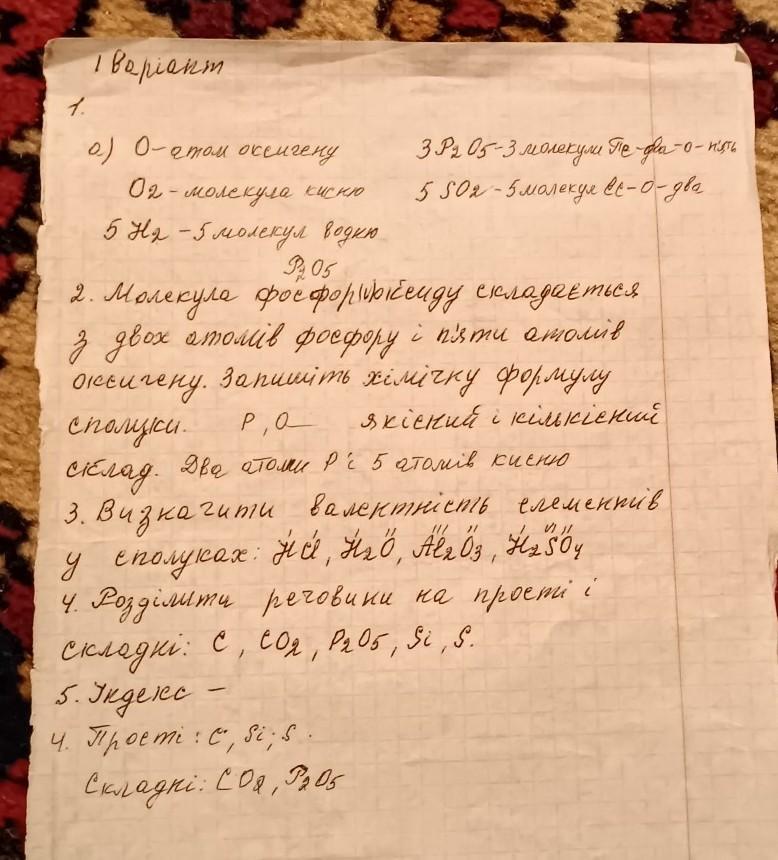 1 варіант
1.
а) О-атом оксигену 3P2O5-3 молекули Пе-два-о-п'ять
O2-молекула кисню 5 SO2-5 молекул Ес-О-два
5 H2-5 молекул водню
P2O5
2. Молекула фосфор(V)оксиду складається
з двох атомів фосфору і п'яти атомів
оксигену. Запишіть хімічну формулу
сполуки. P, O— якісний і кількісний
склад. Два атоми P і 5 атомів кисню
3. Визначити валентність елементів
у сполуках: HCl, H2O, Al2O3, H2SO4
4. Розділити речовини на прості і
складні: C, CO2, P2O5, Si, S.
5. Індекс -
4. Прості: C, Si, S.
Складні: CO2, P2O5